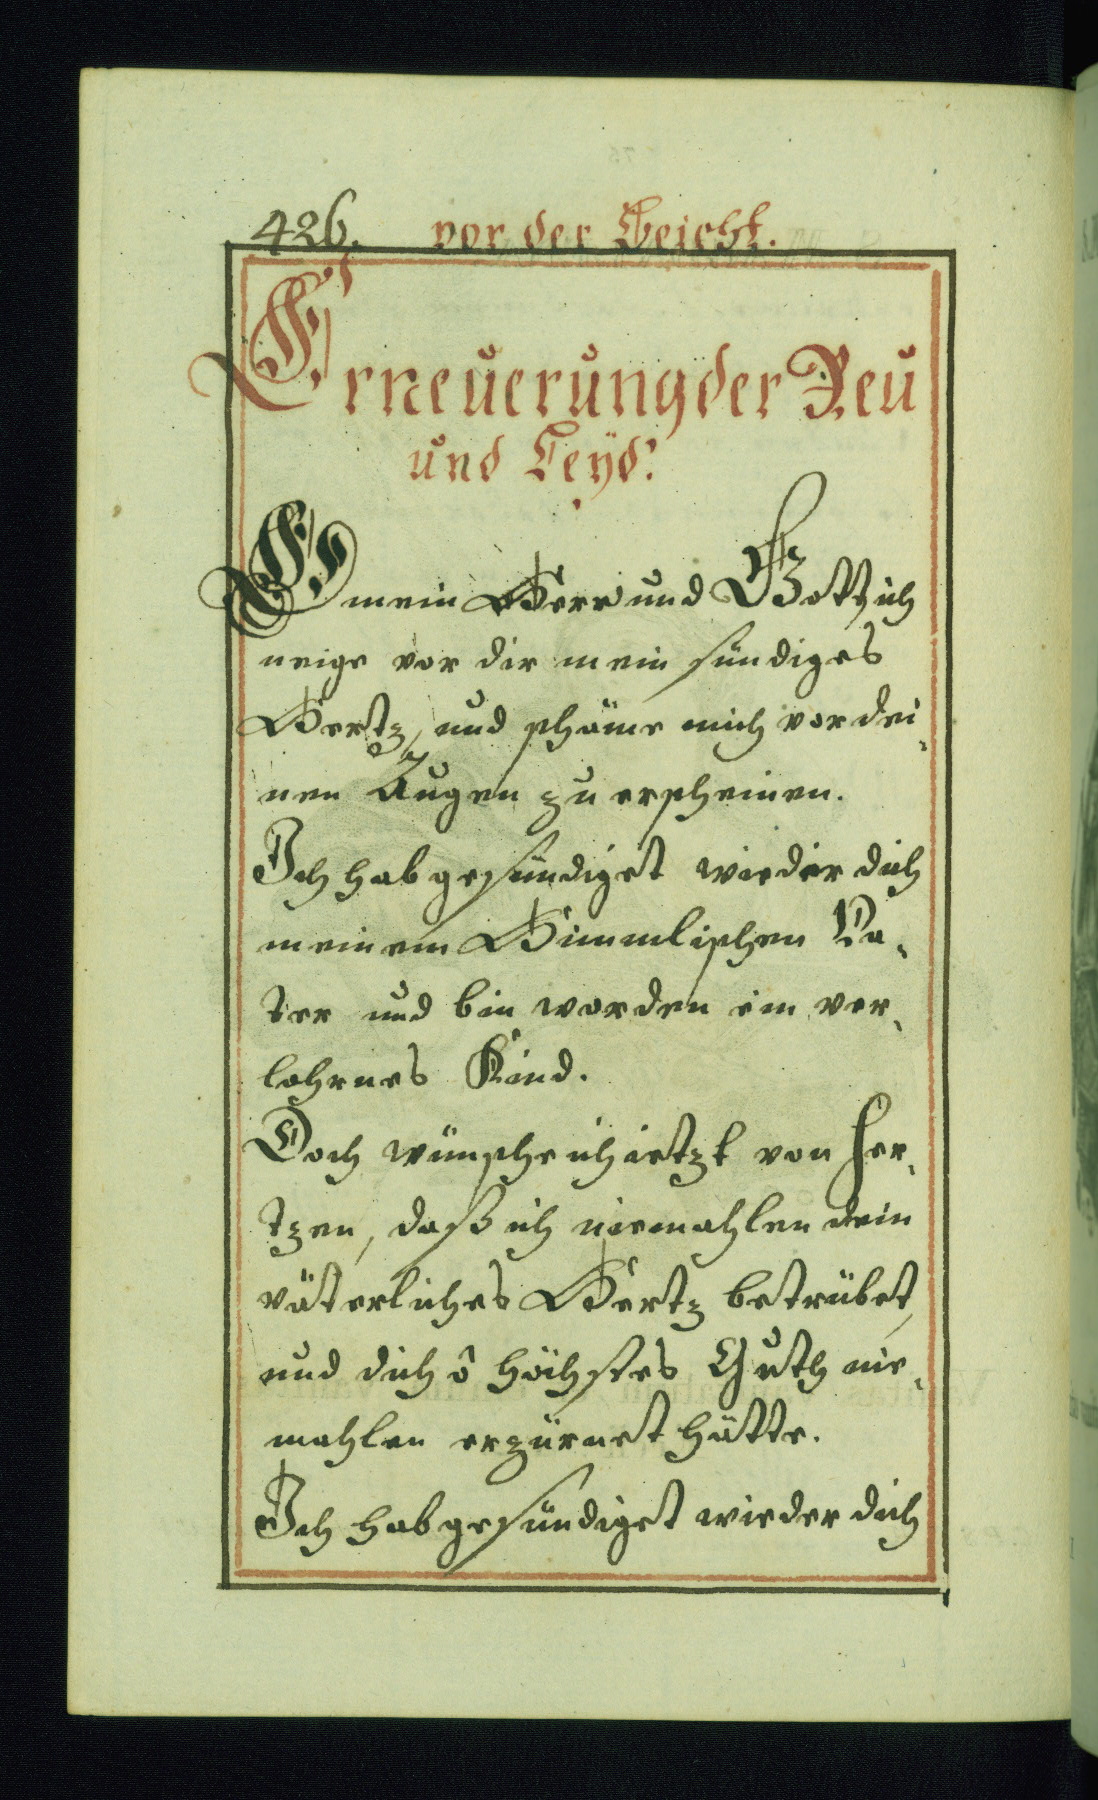 426. vor der Beicht.
Erneuerung der Reu
und Leyd.
O mein Herr und Gott, ich
neige vor dir mein sündiges
Hertz, und schäme mich vor dei,
nen Augen zu erscheinen.
Ich hab gesündiget wieder dich
meinem Himmlischen Va,
ter und bin worden ein ver,
lohrnes Kind.
Doch wünsche ich ietzt von Her,
tzen, daß ich niemahlen dein
väterliches Hertz betrübet,
und dich ô höchstes Guth nie,
mahlen erzürnet hätte.
Ich hab gesündiget wieder dich